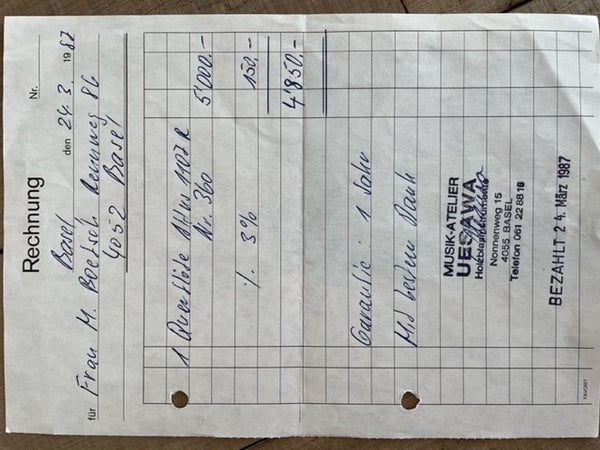 Rechnung
Nr.
Basel den 24.3. 1987
für Frau M. Boetsch Rennweg 86
4052 Basel
1 Querflöte Altus 1407 R 5'000.-
Nr. 360
./. 3% 150.-
4'850.-
Garantie : 1 Jahr
Mit bestem Dank
MUSIK-ATELIER
UESAWA
Holzblasinstrumente
Nonnenweg 15
4055 BASEL
Telefon 061 22 88 18
BEZAHLT 24. März 1987
FAVORIT